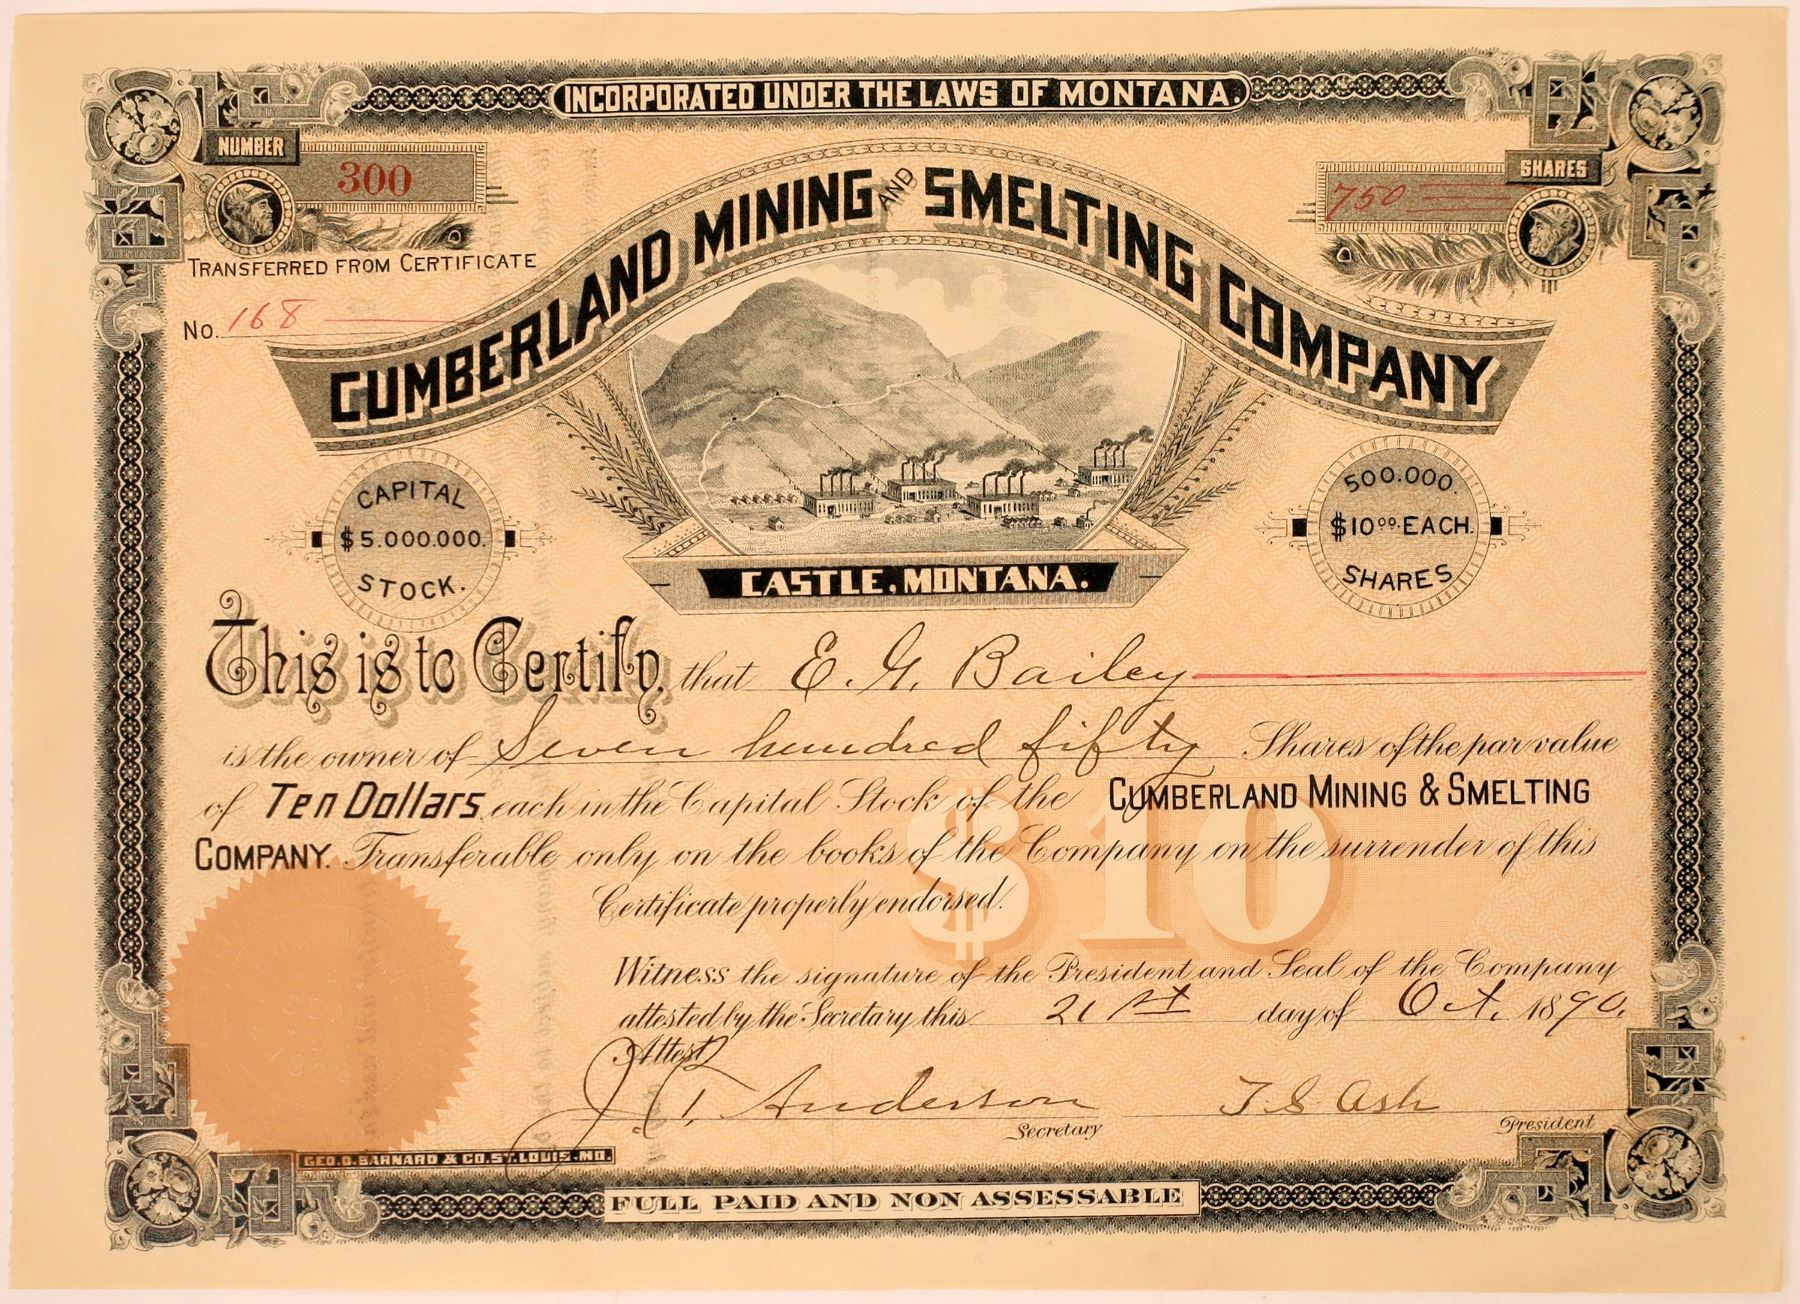 INCORPORATED UNDER THE LAWS OF MONTANA.
NUMBER
300
SHARES
750
TRANSFERRED FROM CERTIFICATE
No. 168
CUMBERLAND MINING AND SMELTING COMPANY
CAPITAL
$5.000.000.
STOCK.
500.000.
$10.00 EACH.
SHARES
CASTLE, MONTANA.
This is to Certify, that E. G. Bailey
is the owner of Seven hundred fifty Shares of the par value
of Ten Dollars each in the Capital Stock of the CUMBERLAND MINING & SMELTING
COMPANY. Transferable only on the books of the Company on the surrender of this
Certificate properly endorsed.
$10
Witness the signature of the President and Seal of the Company
attested by the Secretary this 21st day of Oct. 1890.
Attest
Anderson
Secretary
T S Ash
President
GEO. D. BARNARD & CO. ST. LOUIS. MO.
FULL PAID AND NON ASSESSABLE